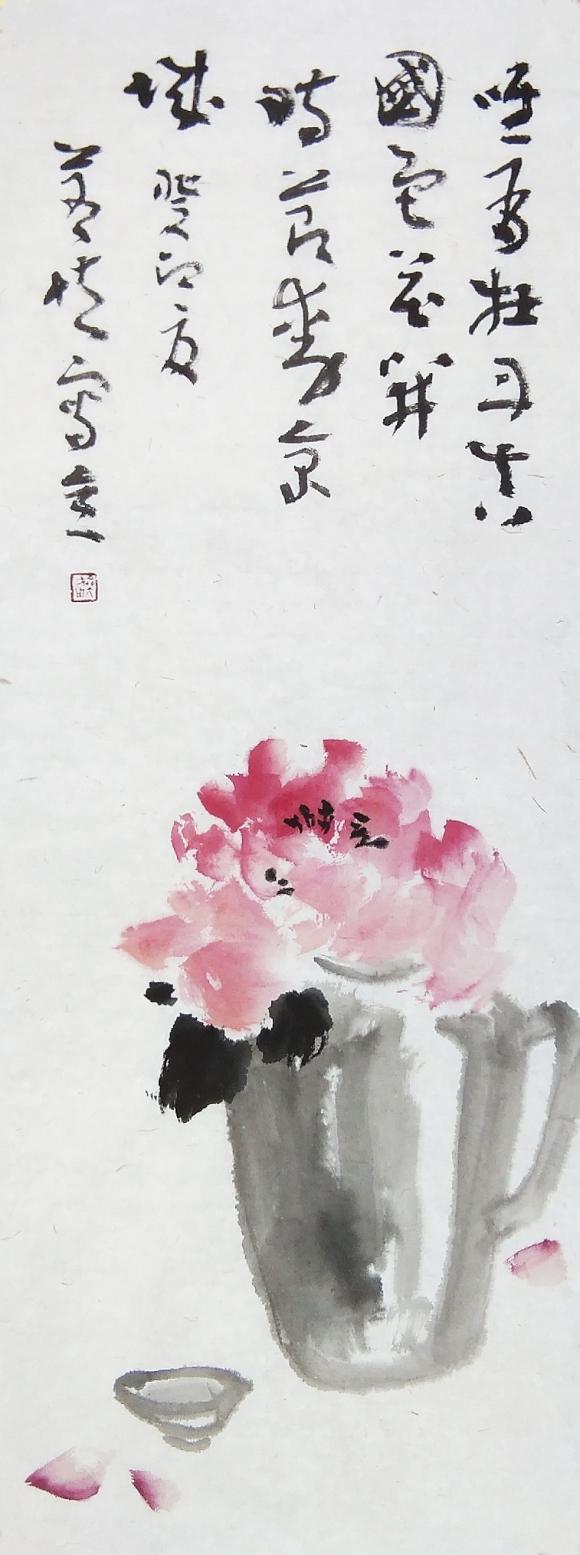 唯有牡丹真
國色花開
時節動京
城 癸卯夏
寫意